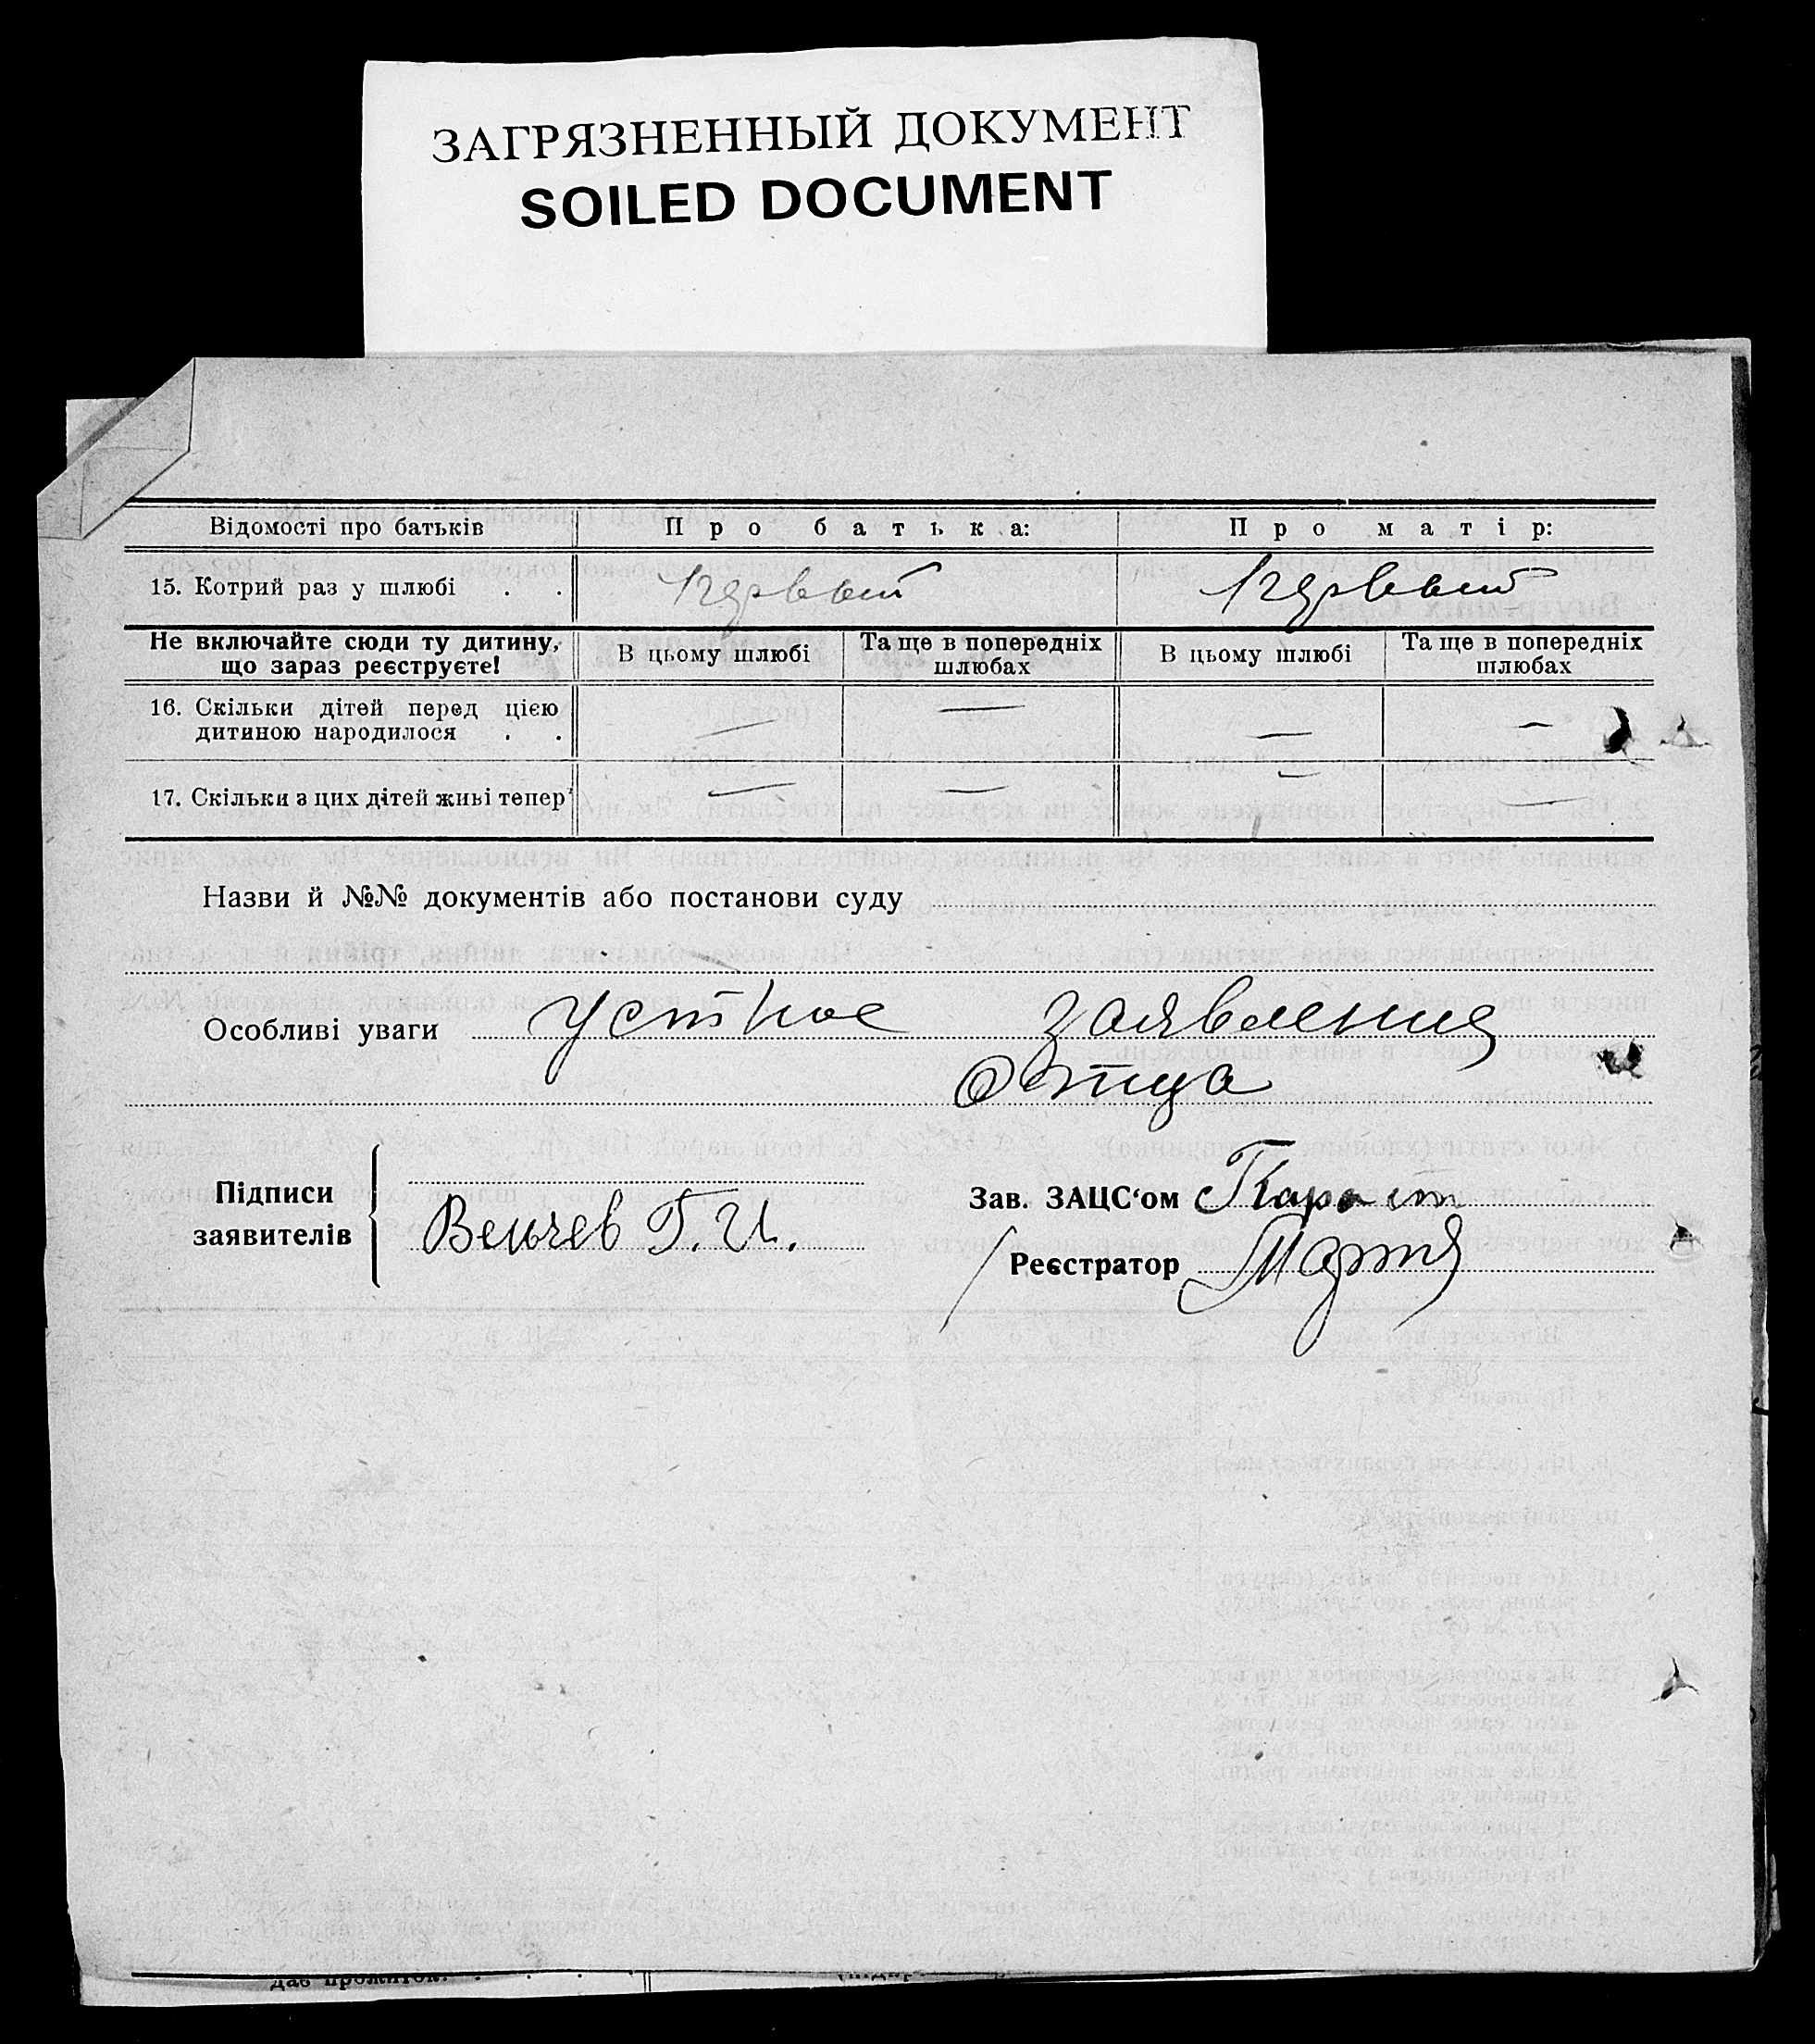 ЗАГРЯЗНЕННЫЙ ДОКУМЕНТ
SOILED DOCUMENT
Відомості про батьків Про батька: Про матір:
15. Котрий раз у шлюбі . . первый первый
Не включайте сюди ту дитину, що зараз реєструєте! В цьому шлюбі Та ще в попередніх шлюбах В цьому шлюбі Та ще в попередніх шлюбах
16. Скільки дітей перед цією
дитиною народилося . . — — — —
17. Скільки з цих дітей живі тепер — — — —
Назви й №№ документів або постанови суду
Особливі уваги устное заявления
отца
Підписи
заявителів
Вельчев Г. И.
Зав. ЗАЦС‘ом
Реєстратор
дає прожиток.